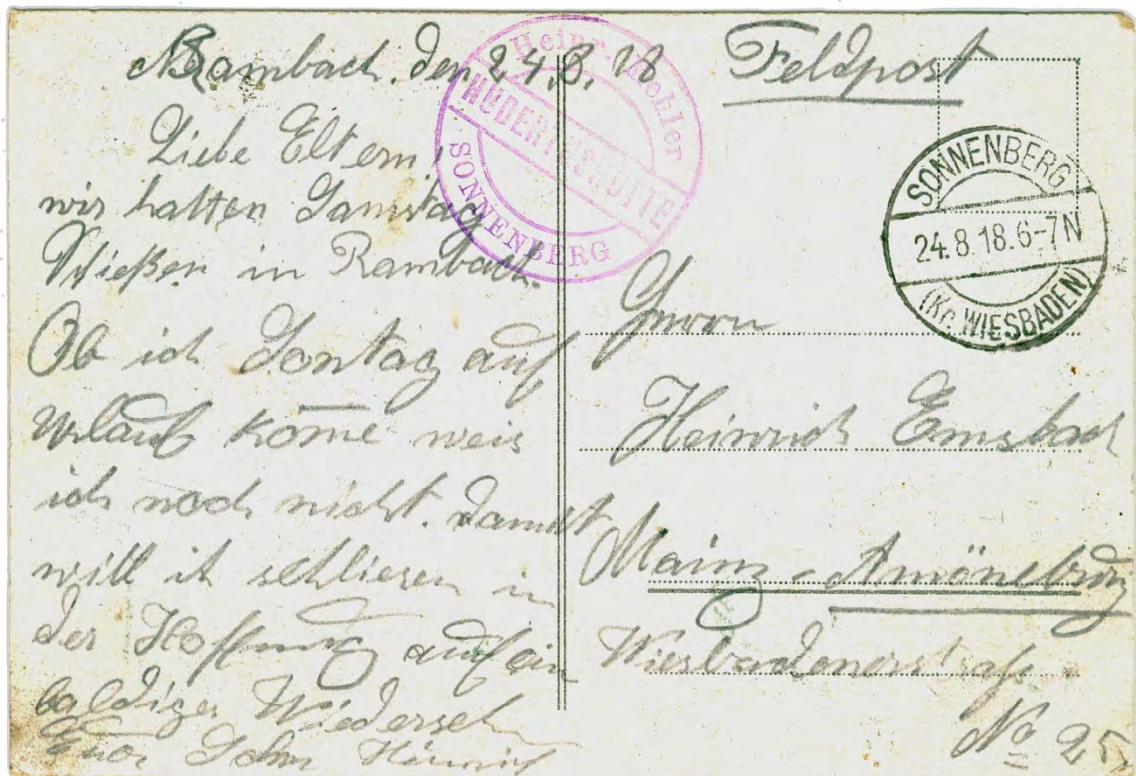 Rambach. den 24.8.18
Liebe Eltern!
wir hatten Samstag
Schießen in Rambach.
Ob ich Sontag auf
urlaub kom̄e weis
ich noch nicht. Damit
will ich schliesen in
der Hoffnung auf ein
baldiges Wiedersehn
Euer Sohn Heinrich
Heinr.
HUBERTUSHÜTTE
SONNENBERG
Feldpost
SONNENBERG
24.8.18.6-7N
(Kr. WIESBADEN)
Herrn
Heinrich Emsbach
Mainz - Amöneburg
Wiesbadenerstraße
No 25